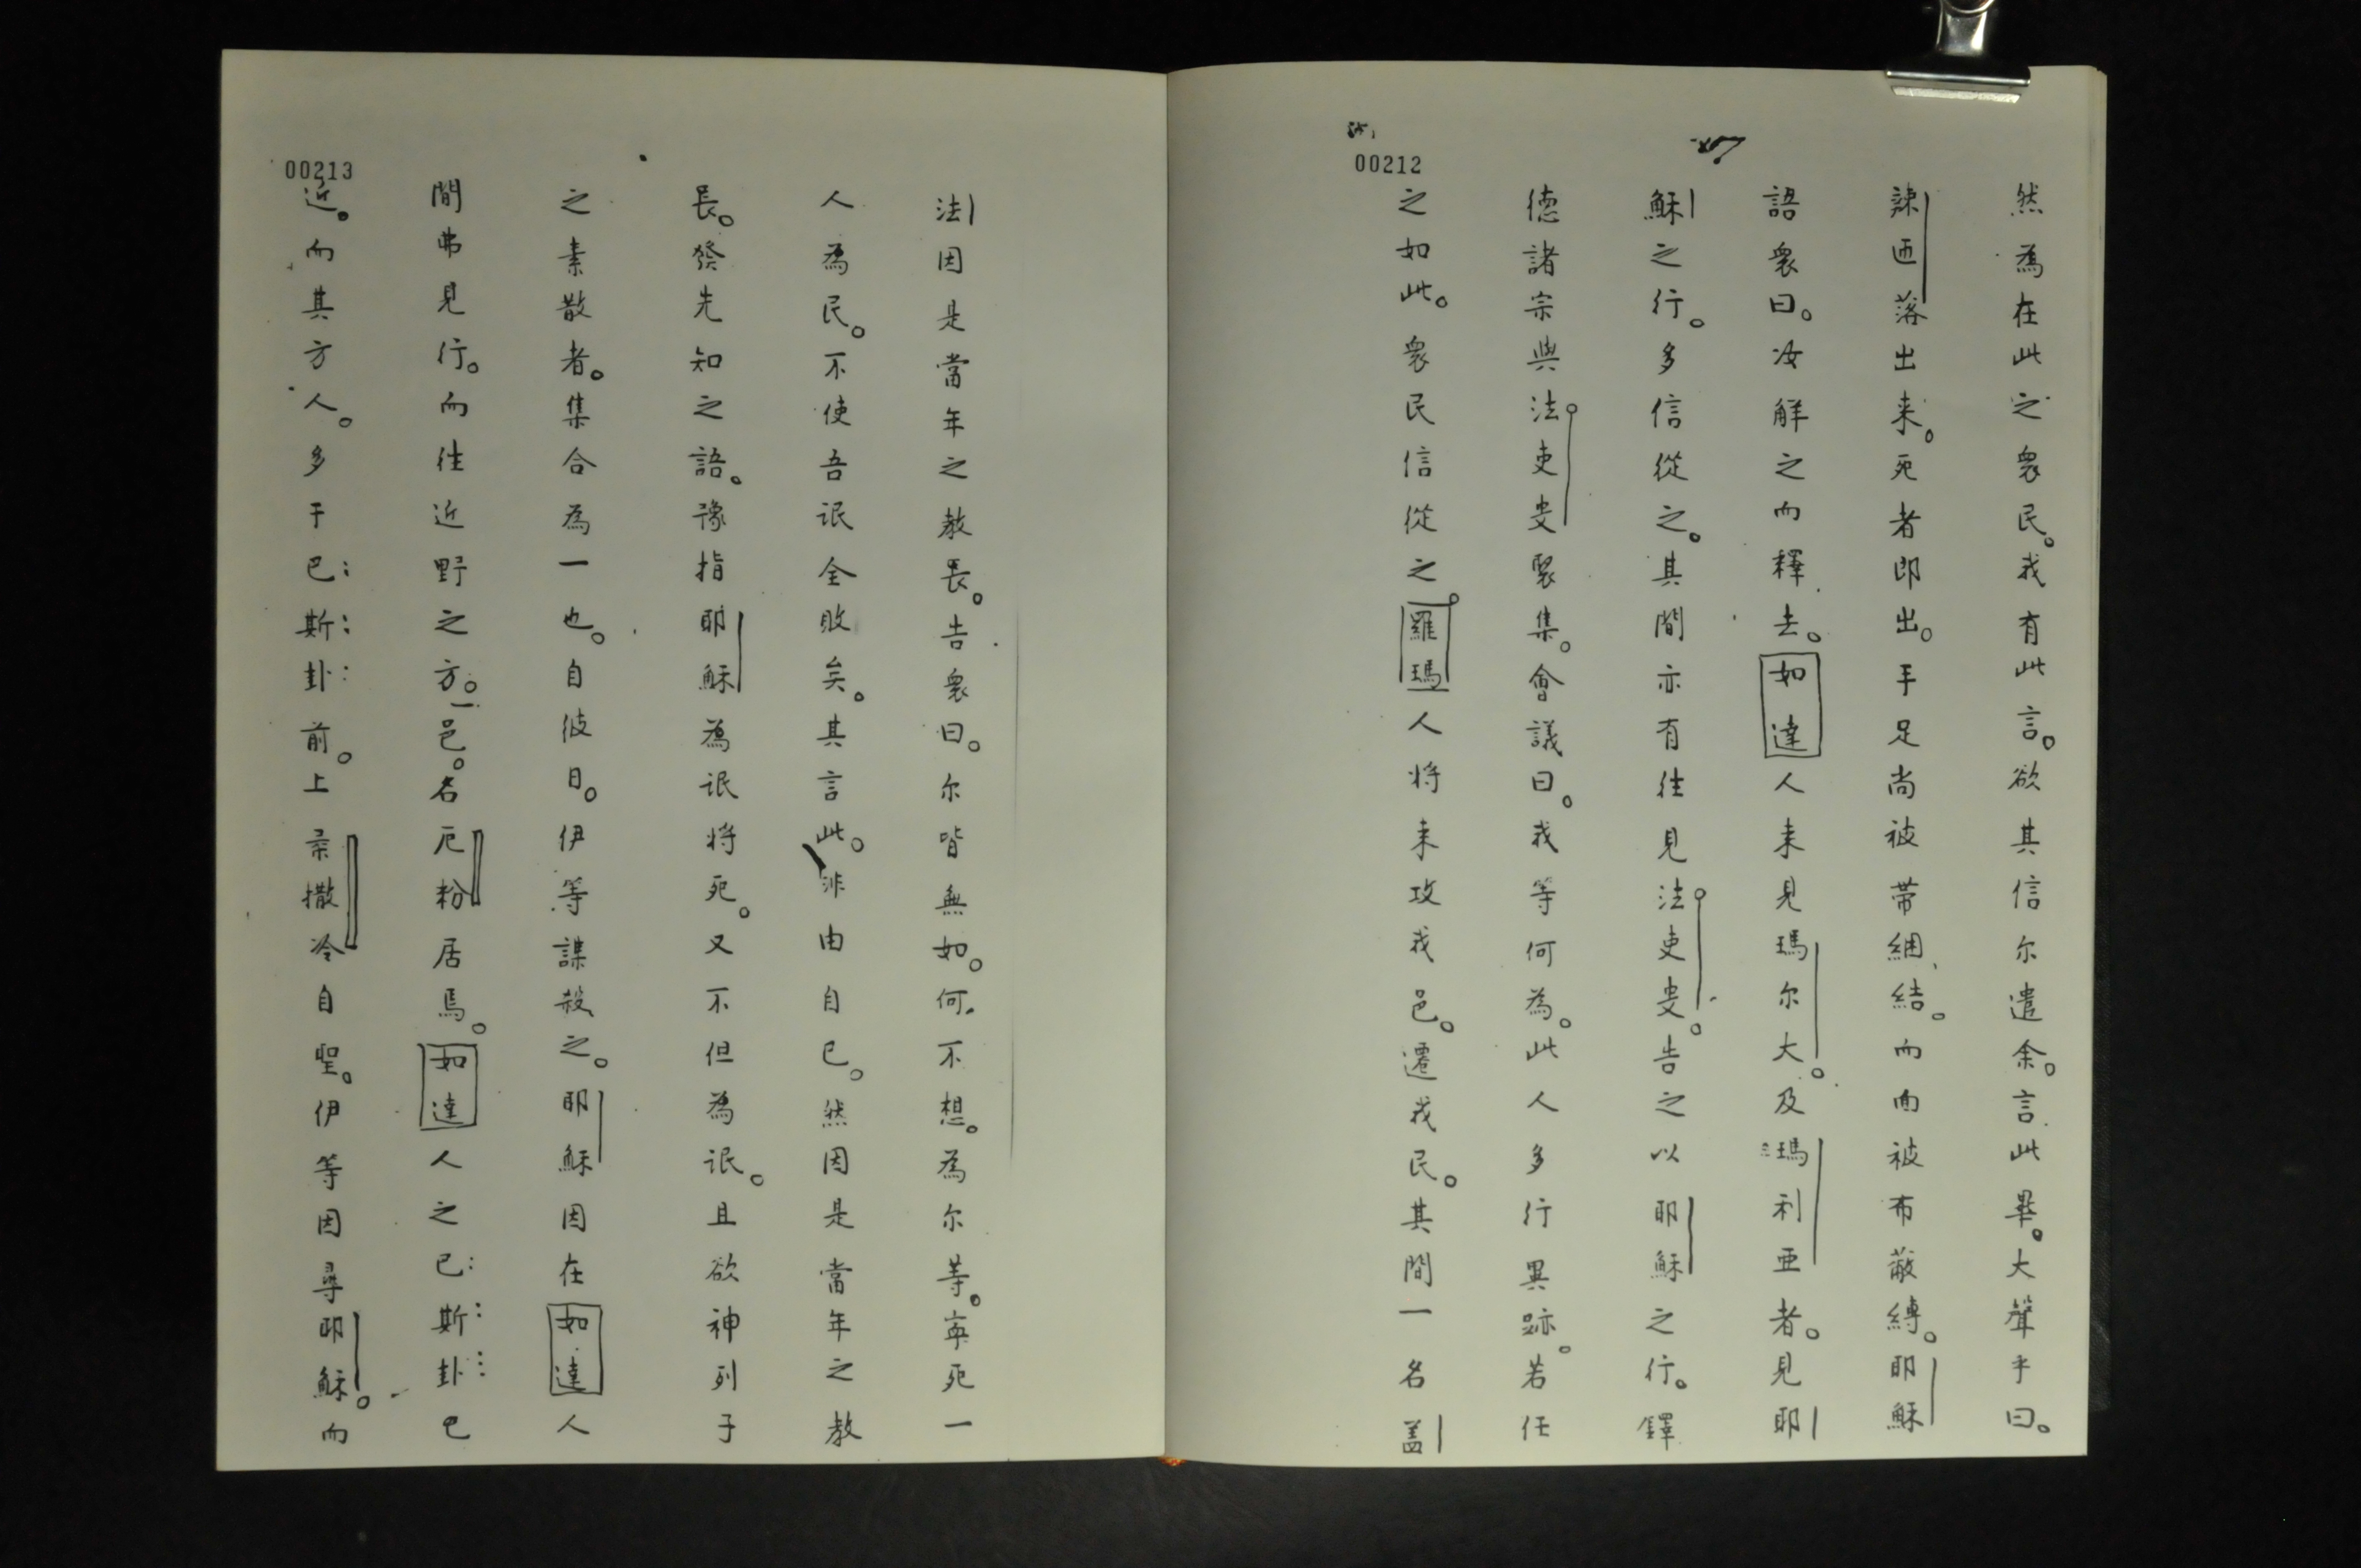 00212
然為在此之衆民。我有此言。欲其信尔遣余。言此畢。大聲乎曰。
辣匝落出来。死者即出。手足尚被带綑結。而面被布蔽縛。耶穌
語衆曰。汝觧之而釋去。如達人来見瑪尔大。及瑪利亜者。見耶
穌之行。多信從之。其間亦有往見法吏叓。告之以耶穌之行。鐸
德諸宗與法吏叓聚集。會議曰。我等何為。此人多行異跡。若任
之如此。衆民信從之。羅瑪人将来攻我邑。遷我民。其間一名盖
00213
法因是當年之教長。告衆曰。尔皆無如。何不想。為尔等。寕死一
人為民。不使吾氓全敗矣。其言此。非由自已。然因是當年之教
長。發先知之語。豫指耶穌為氓将死。又不但為氓。且欲神列子
之素散者。集合為一也。自彼日。伊等謀殺之。耶穌因在如達人
間弗見行。而徃近野之方。一邑。名厄粉居焉。如達人之巴斯卦已
近。而其方人。多于巴斯卦前。上柔撒冷自聖。伊等因尋耶穌。而